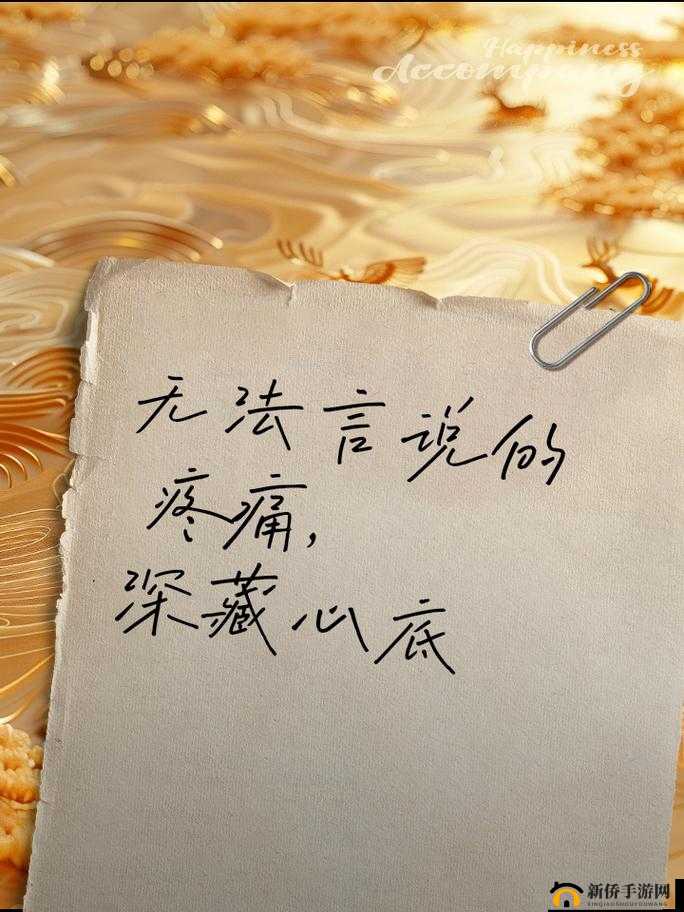 Happiness
Accompany
无法言说的
疼痛，
深藏心底
新侨手游网
XINQIAOSHOUYOUWANG